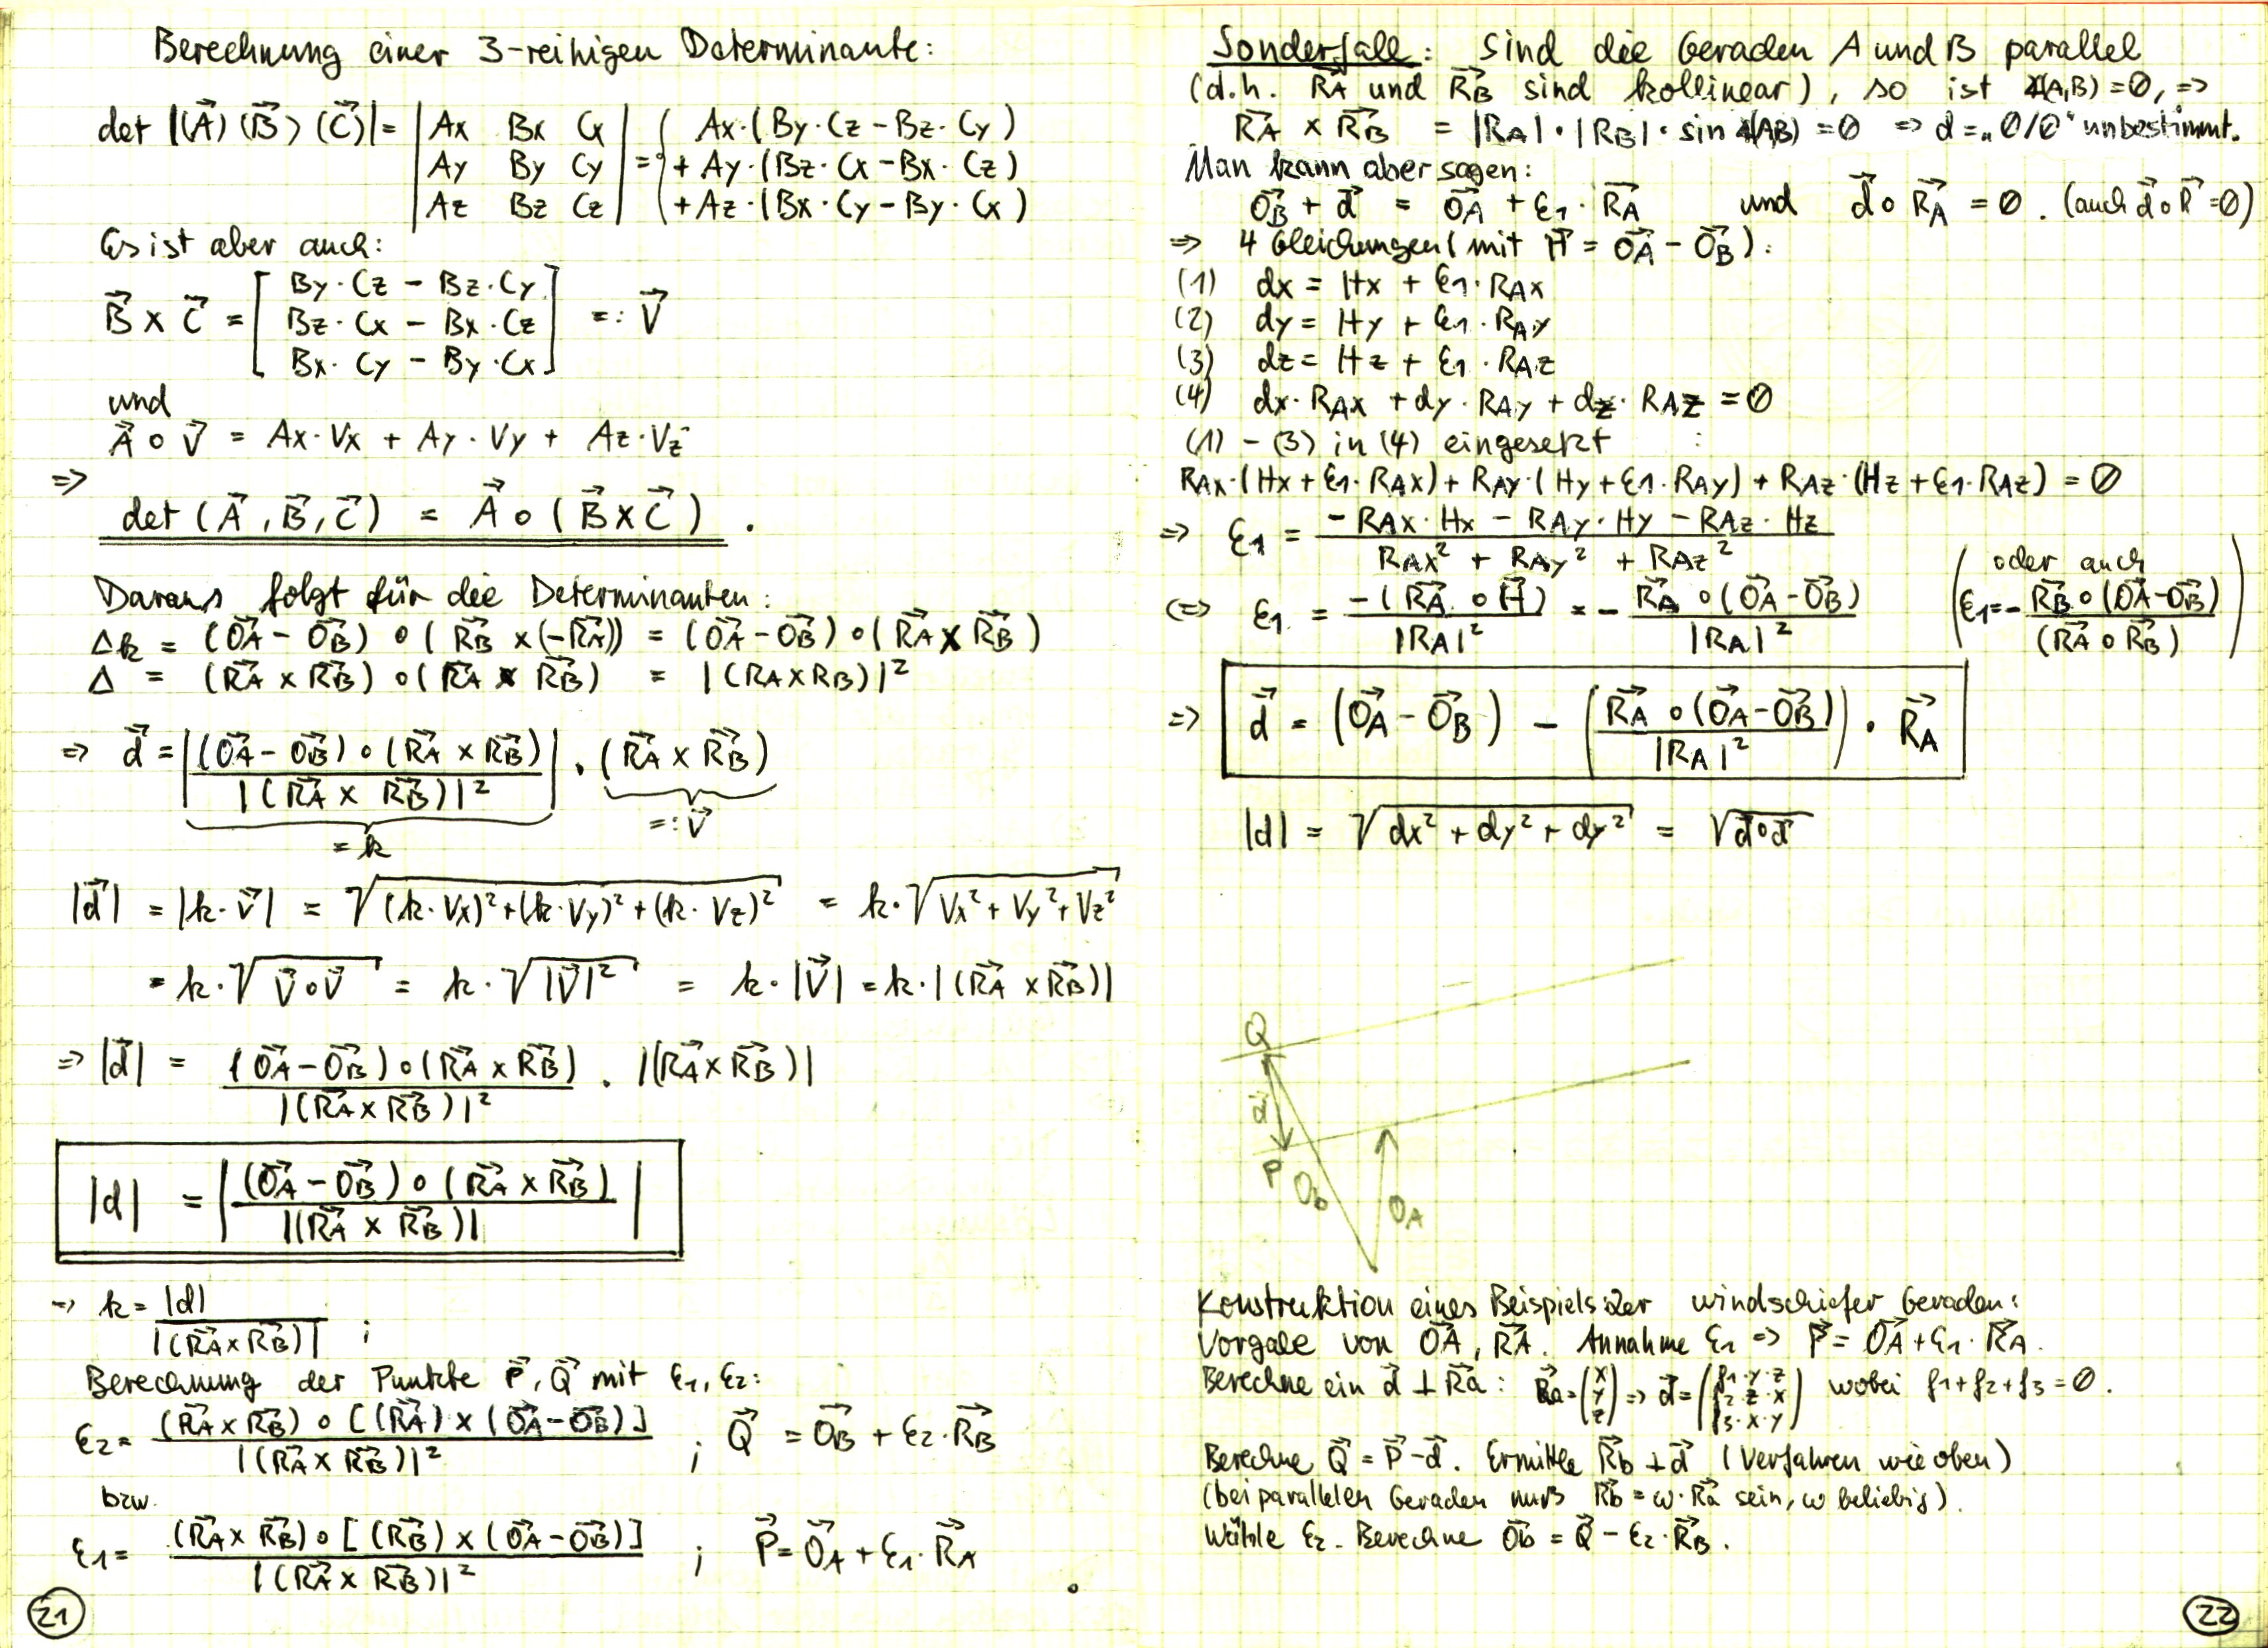 Berechnung einer 3-reihigen Determinante:
det |(A⃗) (B⃗) (C⃗)| = | Ax Bx Cx | = { Ax·(By·Cz − Bz·Cy)
| Ay By Cy | + Ay·(Bz·Cx − Bx·Cz)
| Az Bz Cz | + Az·(Bx·Cy − By·Cx)
Es ist aber auch:
B⃗ × C⃗ = [ By·Cz − Bz·Cy
Bz·Cx − Bx·Cz
Bx·Cy − By·Cx ] =: V⃗
und
A⃗ ∘ V⃗ = Ax·Vx + Ay·Vy + Az·Vz
⇒
det (A⃗, B⃗, C⃗) = A⃗ ∘ (B⃗ × C⃗) .
Daraus folgt für die Determinanten:
Δk = (O⃗A − O⃗B) ∘ (R⃗B × (−R⃗A)) = (O⃗A − O⃗B) ∘ (R⃗A × R⃗B)
Δ = (R⃗A × R⃗B) ∘ (R⃗A × R⃗B) = |(RA × RB)|²
⇒ d⃗ = | (O⃗A − O⃗B) ∘ (R⃗A × R⃗B) / |(R⃗A × R⃗B)|² | · (R⃗A × R⃗B)
= k =: V⃗
|d⃗| = |k·v⃗| = √((k·Vx)² + (k·Vy)² + (k·Vz)²) = k·√(Vx² + Vy² + Vz²)
= k·√(V⃗∘V⃗) = k·√(|V⃗|²) = k·|V⃗| = k·|(R⃗A × R⃗B)|
⇒ |d⃗| = (O⃗A − O⃗B) ∘ (R⃗A × R⃗B) / |(R⃗A × R⃗B)|² · |(R⃗A × R⃗B)|
|d| = | (O⃗A − O⃗B) ∘ (R⃗A × R⃗B) / |(R⃗A × R⃗B)| |
⇒ k = |d| / |(R⃗A × R⃗B)| ;
Berechnung der Punkte P⃗, Q⃗ mit ε1, ε2:
ε2 = (R⃗A × R⃗B) ∘ [(R⃗A) × (O⃗A − O⃗B)] / |(R⃗A × R⃗B)|² ; Q⃗ = O⃗B + ε2·R⃗B
bzw.
ε1 = (R⃗A × R⃗B) ∘ [(R⃗B) × (O⃗A − O⃗B)] / |(R⃗A × R⃗B)|² ; P⃗ = O⃗A + ε1·R⃗A
21
Sonderfall: Sind die Geraden A und B parallel
(d.h. R⃗A und R⃗B sind kollinear), so ist ∢(A,B) = 0, ⇒
R⃗A × R⃗B = |RA|·|RB|·sin ∢(AB) = 0 ⇒ d = „0/0“ unbestimmt.
Man kann aber sagen:
O⃗B + d⃗ = O⃗A + ε1·R⃗A und d⃗ ∘ R⃗A = 0. (auch d⃗ ∘ R⃗ = 0)
⇒ 4 Gleichungen (mit H⃗ = O⃗A − O⃗B):
(1) dx = Hx + ε1·RAx
(2) dy = Hy + ε1·RAy
(3) dz = Hz + ε1·RAz
(4) dx·RAx + dy·RAy + dz·RAz = 0
(1) − (3) in (4) eingesetzt :
RAx·(Hx + ε1·RAx) + RAy·(Hy + ε1·RAy) + RAz·(Hz + ε1·RAz) = 0
⇒ ε1 = −RAx·Hx − RAy·Hy − RAz·Hz / RAx² + RAy² + RAz²
⇔ ε1 = −(R⃗A ∘ H⃗) / |RA|² = − R⃗A ∘ (O⃗A − O⃗B) / |RA|² ( oder auch ε1 = − R⃗B ∘ (O⃗A − O⃗B) / (R⃗A ∘ R⃗B) )
⇒ d⃗ = (O⃗A − O⃗B) − ( R⃗A ∘ (O⃗A − O⃗B) / |RA|² ) · R⃗A
|d| = √(dx² + dy² + dy²) = √(d⃗∘d⃗)
Q
d⃗
P
Ob
OA
Konstruktion eines Beispiels 2er windschiefer Geraden:
Vorgabe von O⃗A, R⃗A. Annahme ε1 ⇒ P⃗ = O⃗A + ε1·R⃗A.
Berechne ein d⃗ ⊥ R⃗a: R⃗a = (x y z) ⇒ d⃗ = (f1·y·z f2·z·x f3·x·y) wobei f1 + f2 + f3 = 0.
Berechne Q⃗ = P⃗ − d⃗. Ermittle R⃗b ⊥ d⃗ (Verfahren wie oben)
(bei parallelen Geraden muß R⃗b = ω·R⃗a sein, ω beliebig).
Wähle ε2. Berechne O⃗b = Q⃗ − ε2·R⃗B.
22